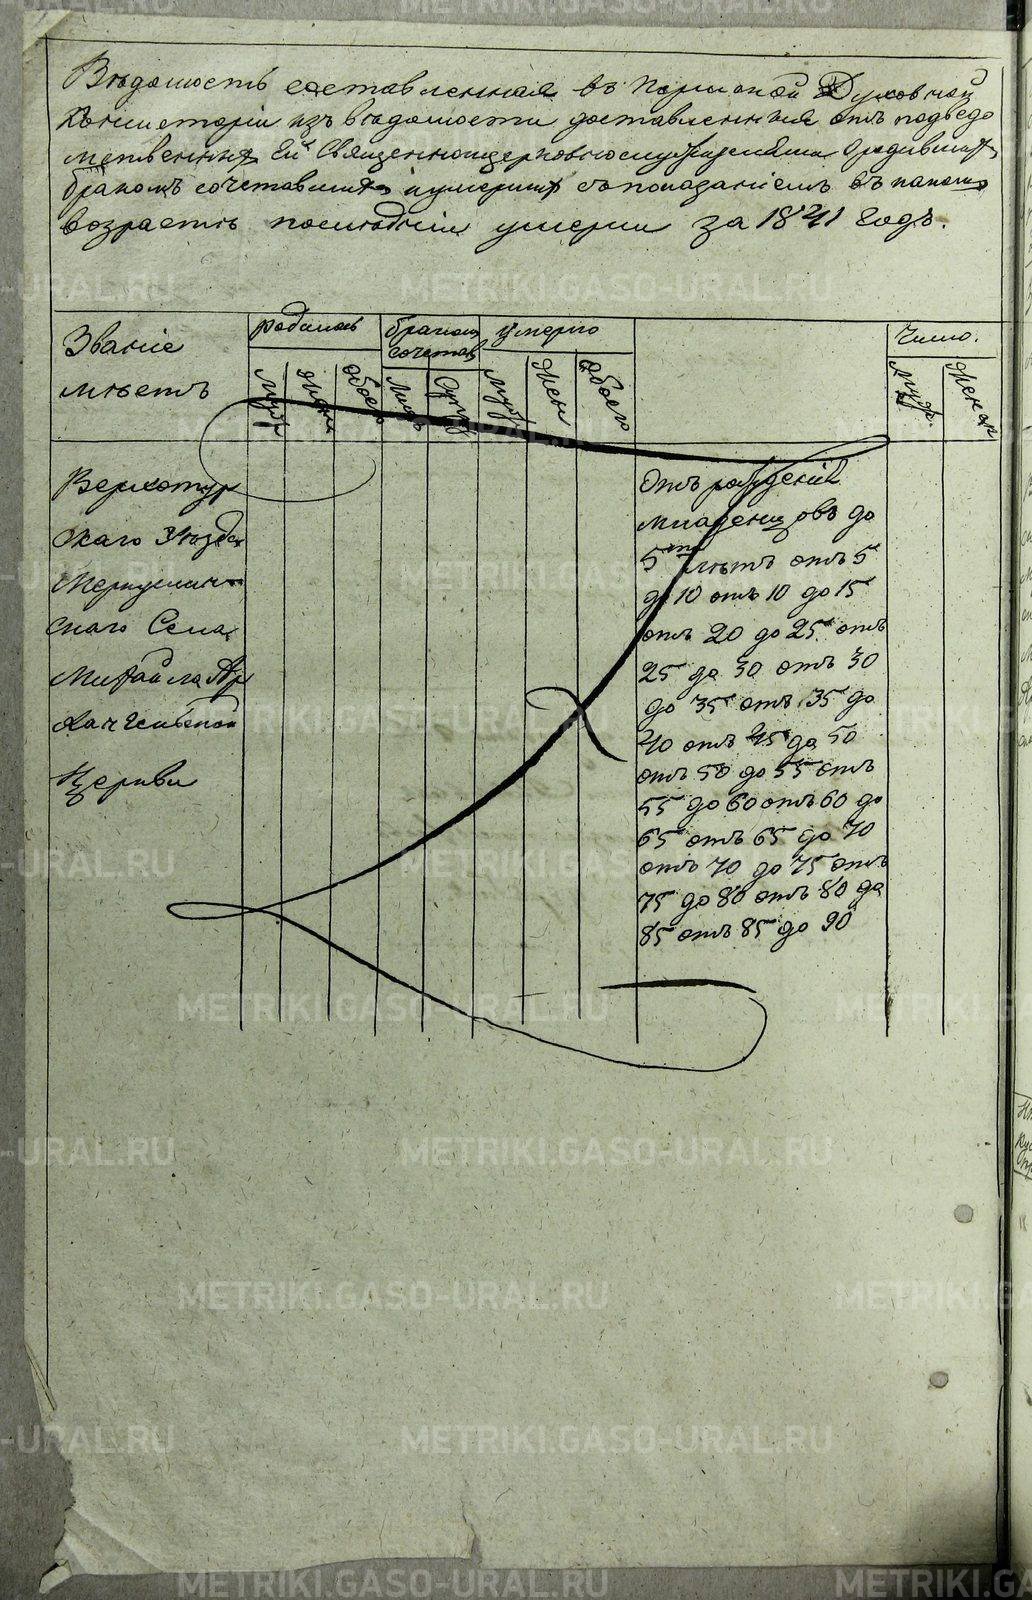 Вѣдомость составленная въ Пермской Духовной
Консисторіи изъ вѣдомости доставленныя отъ подведо
мственныхъ Ей Священноцерковнослужителями Ородившихъ
бракомъ сочетавшихъ иумершихъ съпоказаніемъ въ какомъ
возрастѣ последніи умерли за 1841 годъ.
Званіе
мѣстъ
родилось
бракомъ
сочетав
умерло
Число.
муж
жен
обоего
муж
Жен
обоего
муж.
Женск
Верхотур
скаго Уѣзда
Меркушин
скаго Села
Михаило Ар
хангельской
Церкви
Отъ рожденій
младенцовъ до
5ти лѣтъ отъ 5
до 10 отъ 10 до 15
отъ 20 до 25 отъ
25 до 30 отъ 30
до 35 отъ 35 до
40 отъ 45 до 50
отъ 50 до 55 отъ
55 до 60 отъ 60 до
65 отъ 65 до 70
отъ 70 до 75 отъ
75 до 80 отъ 80 до
85 отъ 85 до 90
METRIKI.GASO-URAL.RU